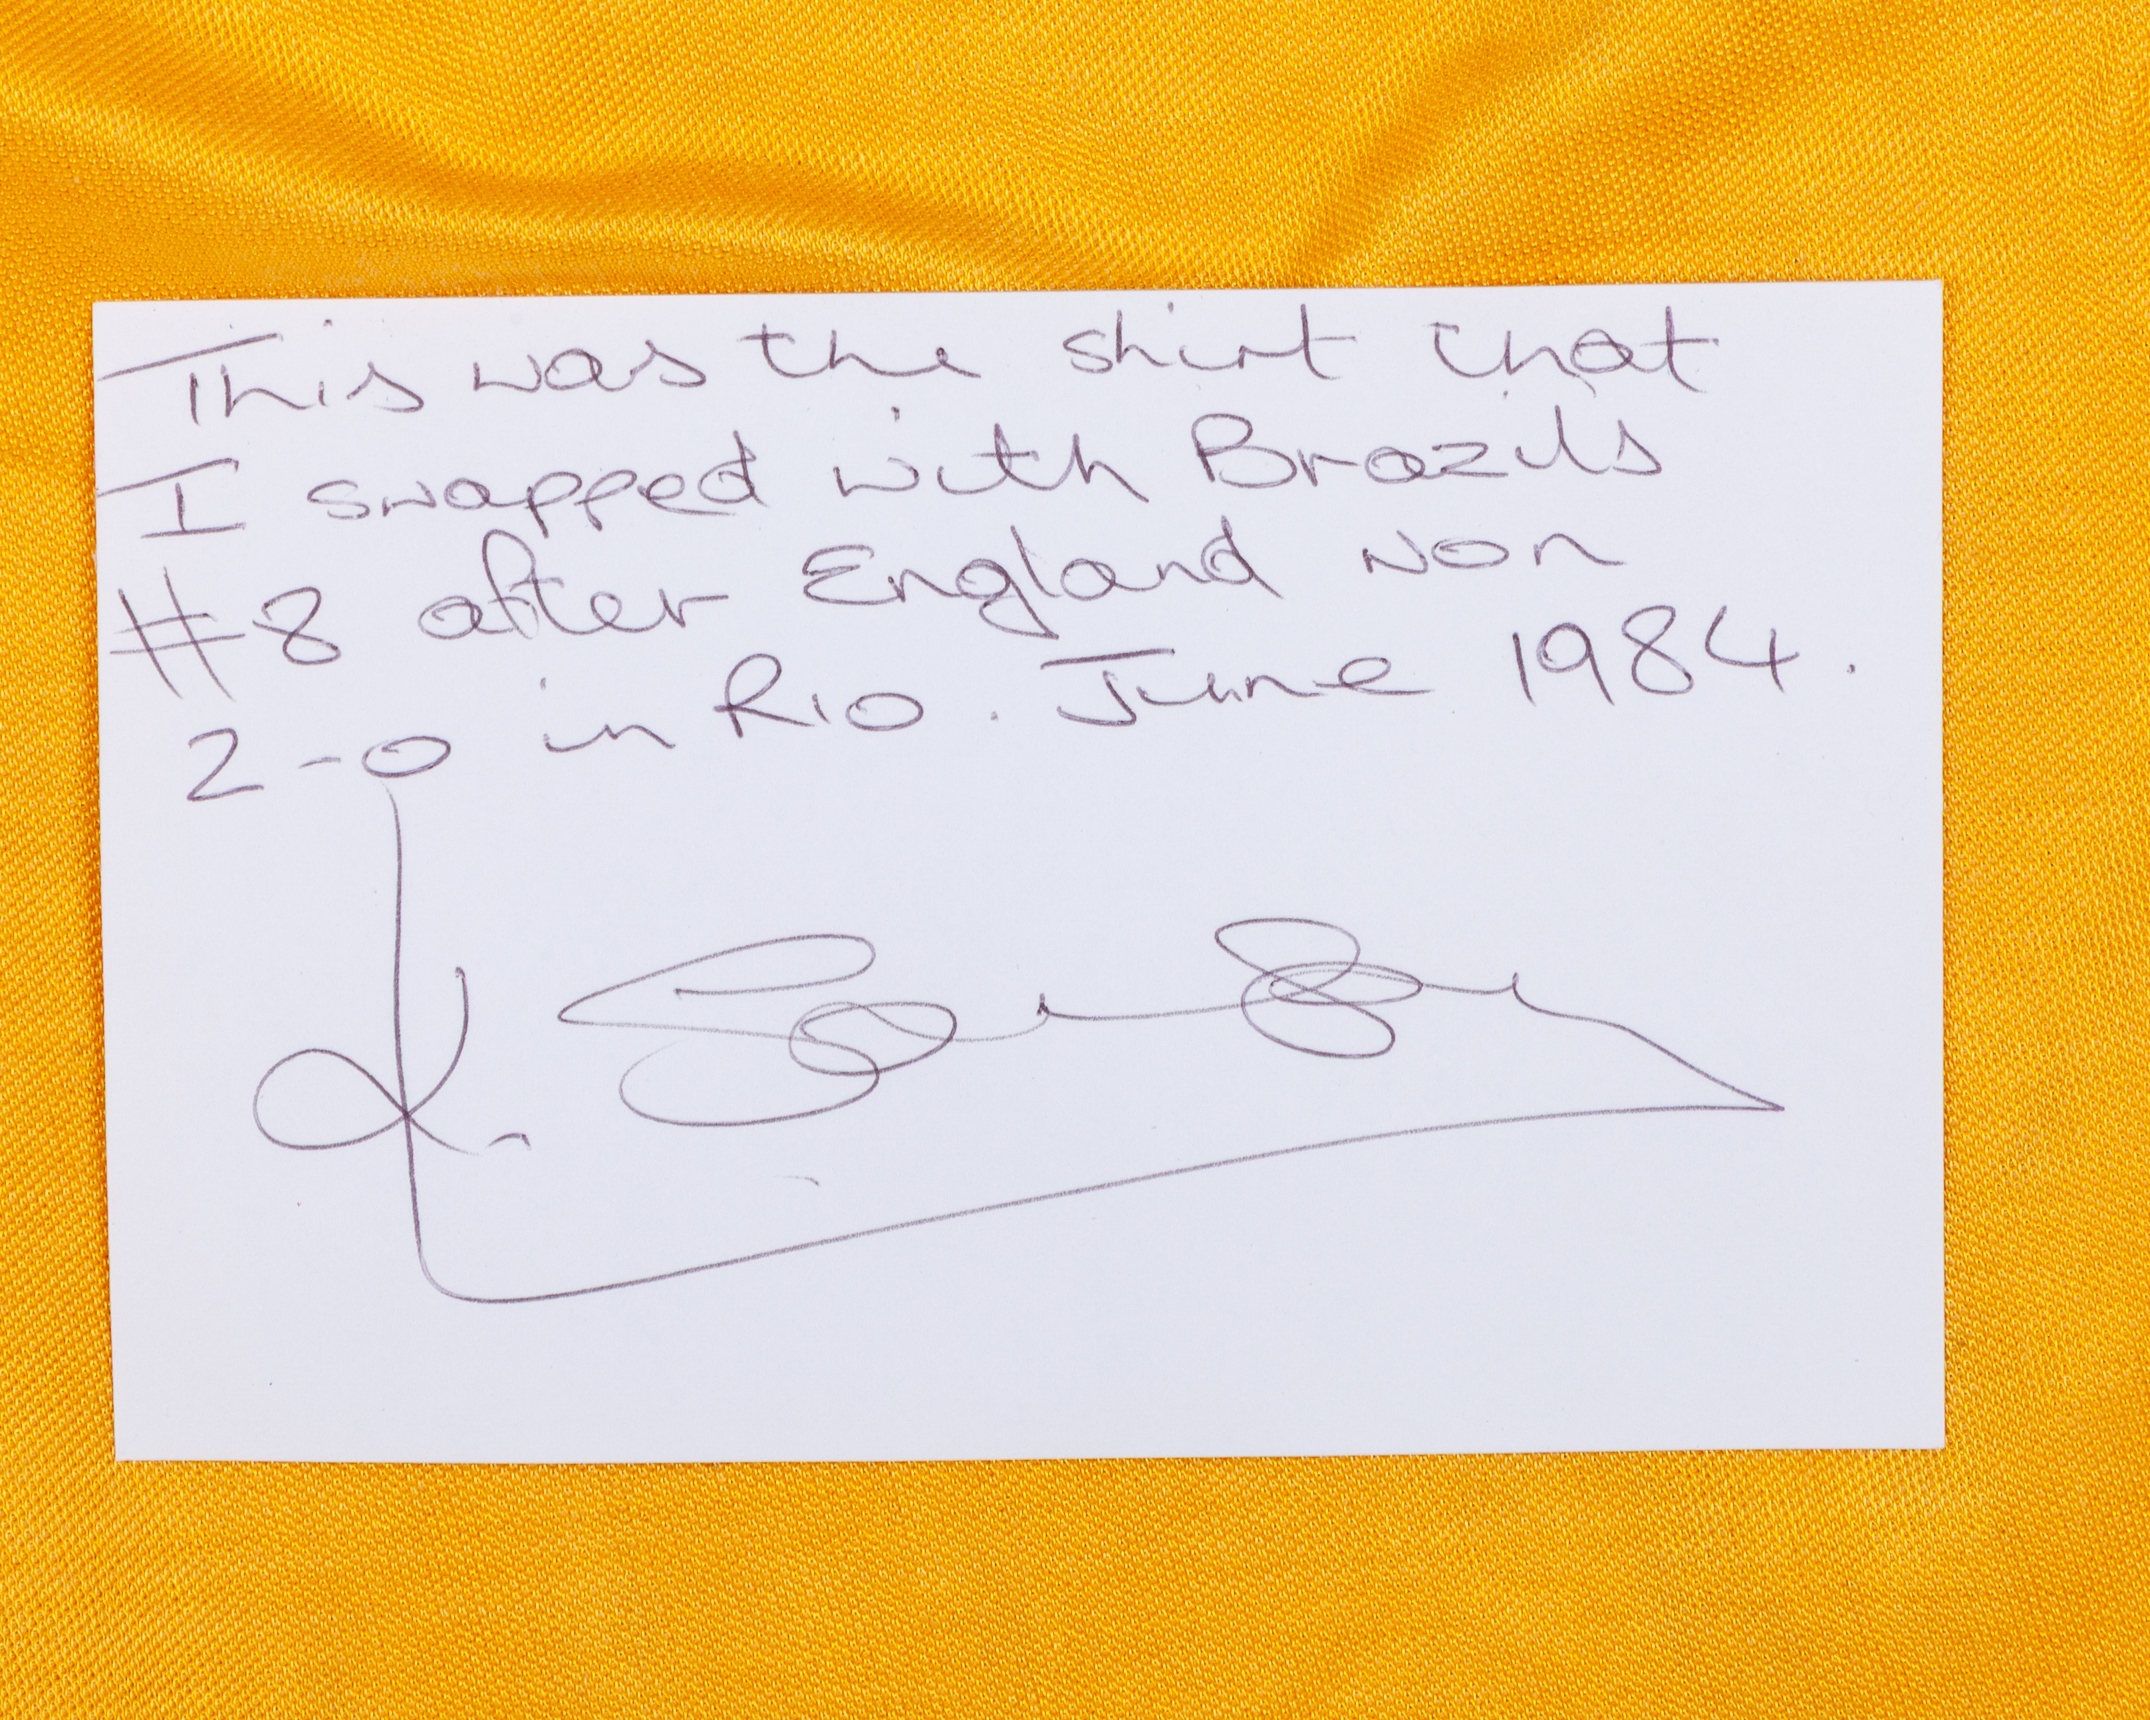 This was the shirt that
I swapped with Brazils
#8 after England won
2-0 in Rio. June 1984.
K. Sansom